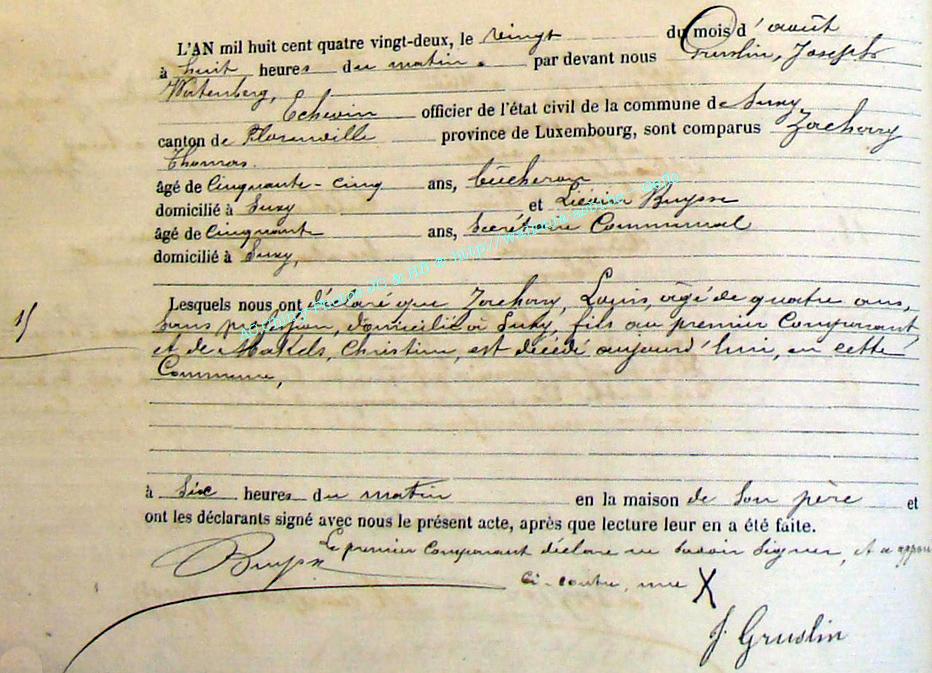 L'AN mil huit cent quatre vingt-deux, le vingt du mois d'août
à huit heures du matin. par devant nous Gruslin, Joseph
Echevin officier de l'état civil de la commune de Suxy
canton de Florenville province de Luxembourg, sont comparus Zachary
Thomas.
âgé de cinquante-cinq ans, bûcheron
domicilié à Suxy et Liévin Buysse
âgé de cinquante ans, Secrétaire Communal
domicilié à Suxy,
Lesquels nous ont déclaré que Zachary, Louis, âgé de quatre ans,
15
sans profession, domicilié à Suxy, fils au premier Comparant
et de Christine, est décédé aujourd'hui, en cette
Commune,
à Six heures du matin en la maison de Son père et
ont les déclarants signé avec nous le présent acte, après que lecture leur en a été faite.
Le premier Comparant déclare ne Savoir Signer, et a apposé
Buysse
ci-contre, une X
J. Gruslin